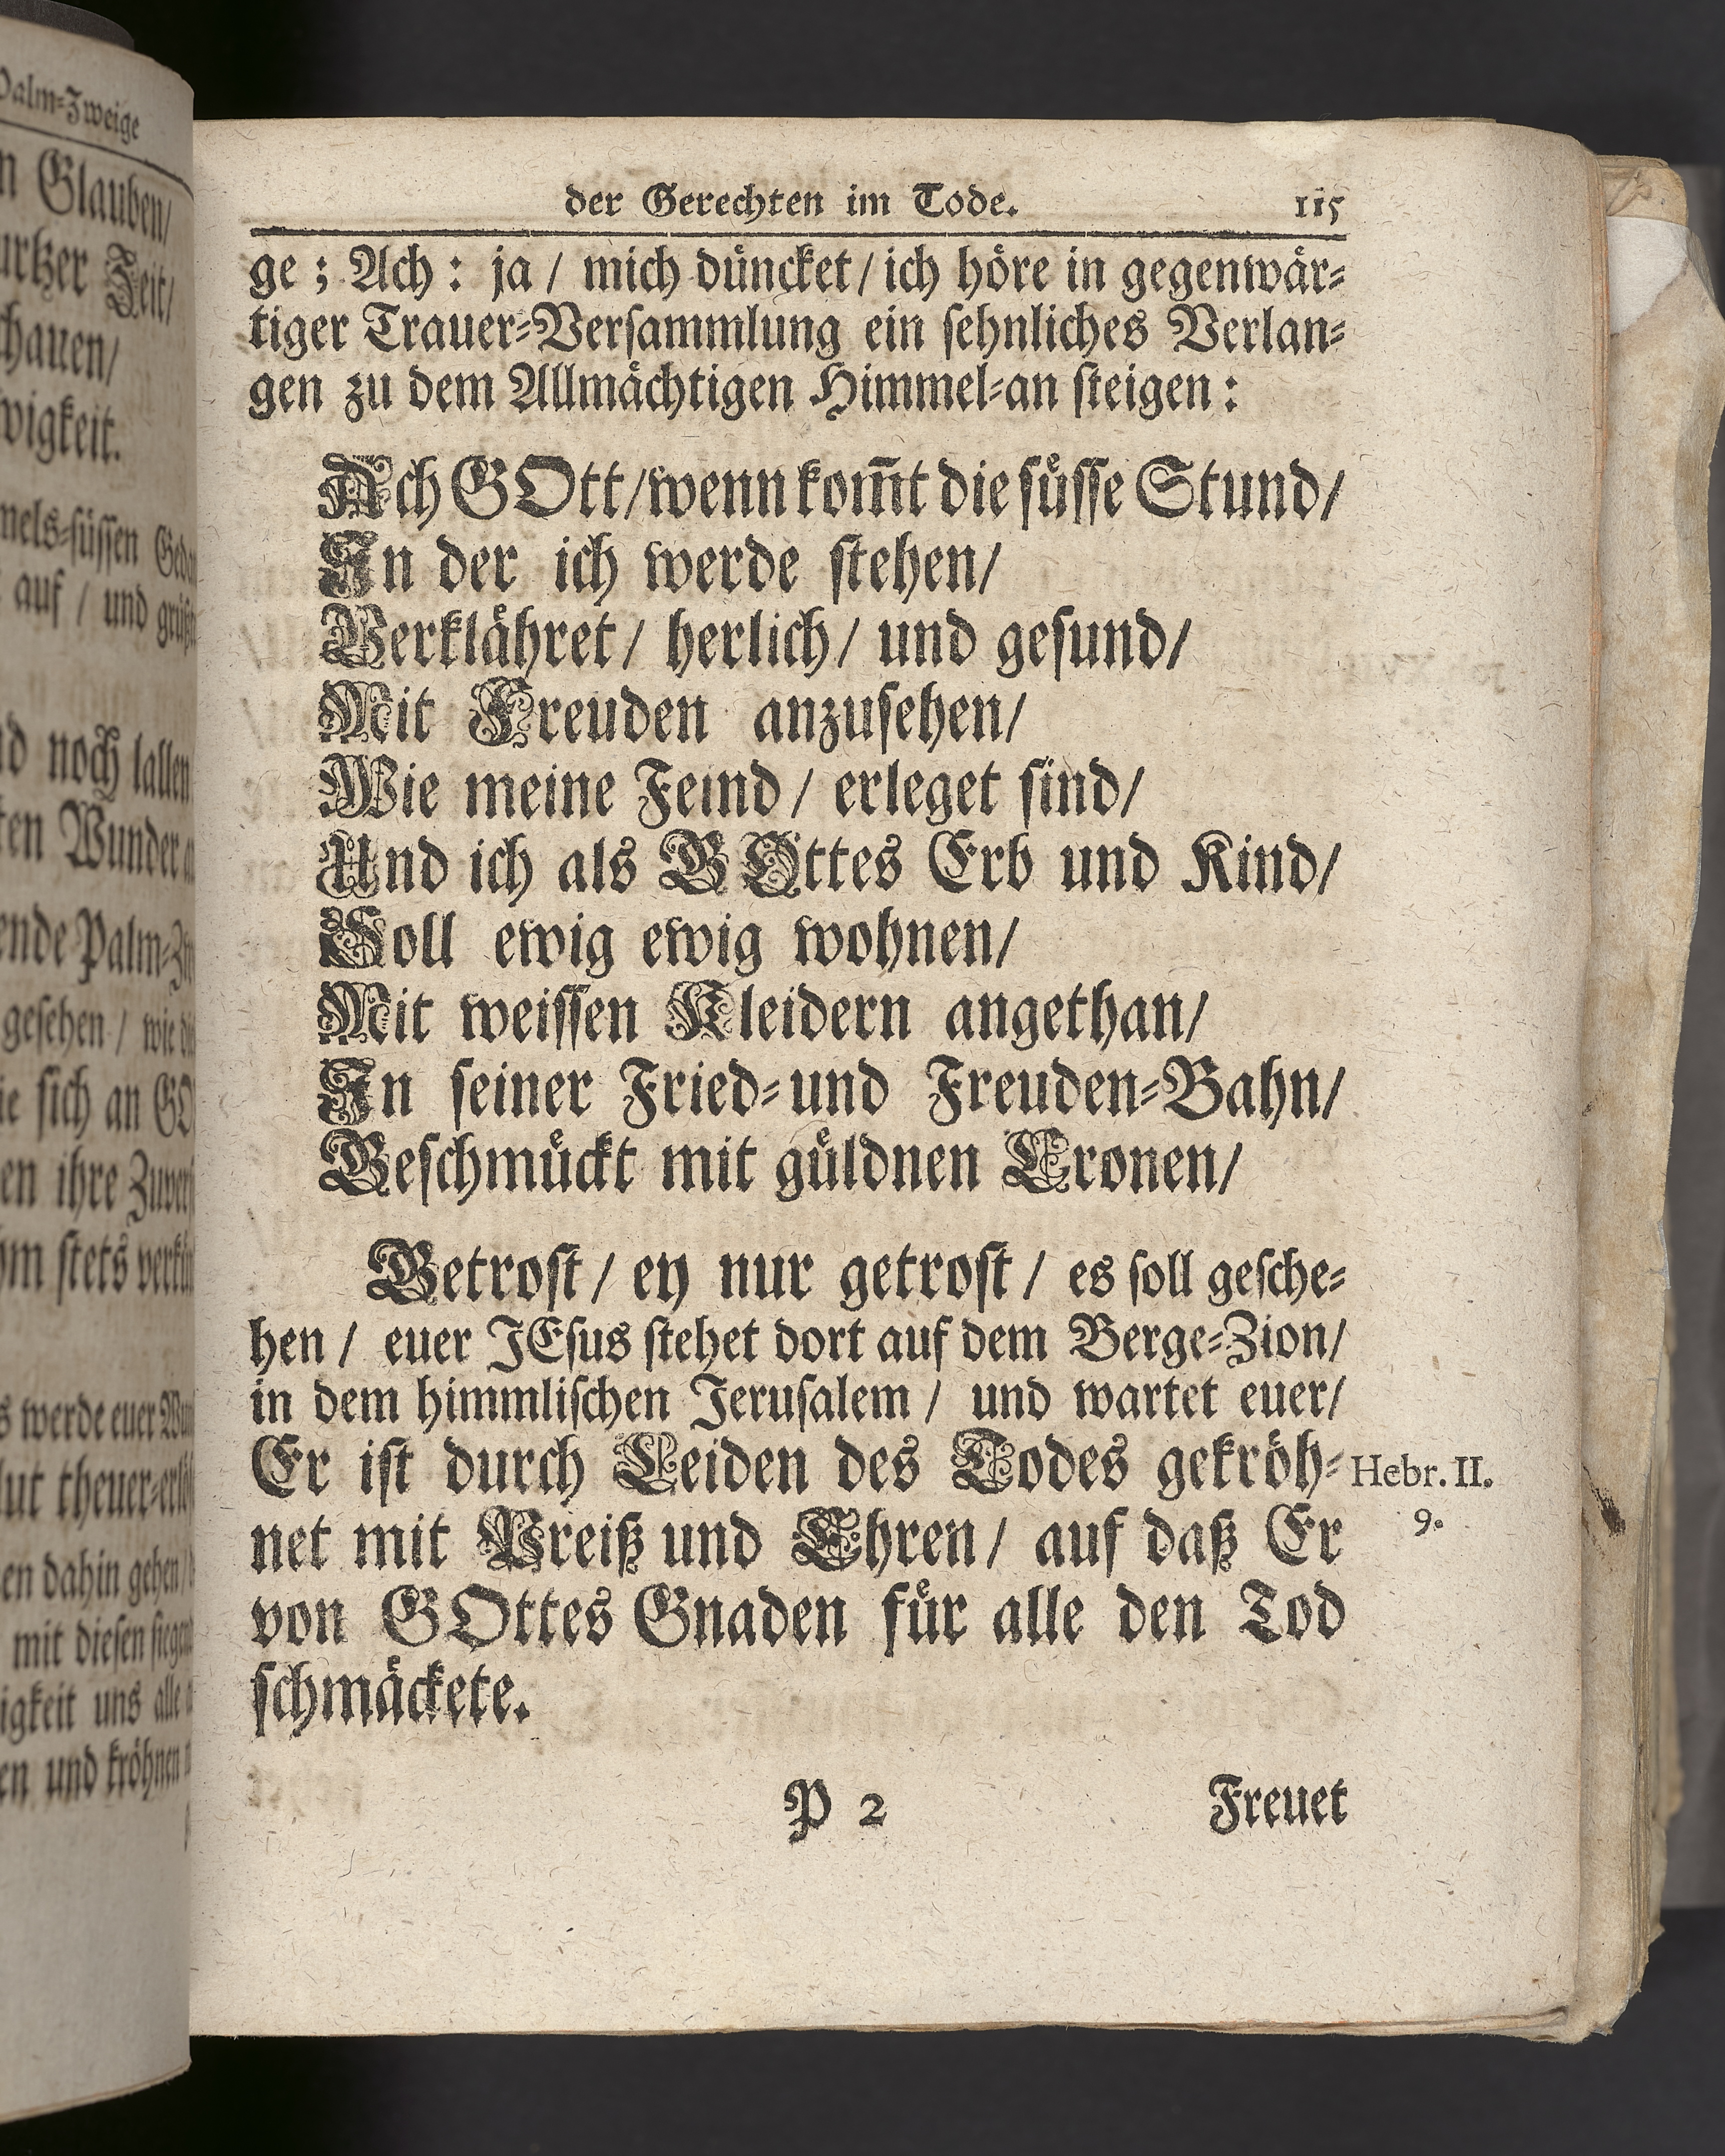 Palm-Zweige
Glauben/
Zeit/
hauen/
wigkeit.
auf / und
noch lallen
Wunder
ende Palm-
gesehen / wie
sich an
ihre
stets
werde euer
theuer-
dahin gehen
mit diesen
igkeit uns alle
und kröhnen
der Gerechten im Tode. 115
ge ; Ach : ja / mich düncket / ich höre in gegenwär-
tiger Trauer-Versammlung ein sehnliches Verlan-
gen zu dem Allmächtigen Himmel-an steigen :
Ach GOtt/wenn kom̃t die süsse Stund/
In der ich werde stehen/
Verklähret/ herlich/ und gesund/
Mit Freuden anzusehen/
Wie meine Feind / erleget sind/
Und ich als GOttes Erb und Kind/
Soll ewig ewig wohnen/
Mit weissen Kleidern angethan/
In seiner Fried-und Freuden-Bahn/
Geschmückt mit güldnen Cronen/
Getrost / ey nur getrost / es soll gesche-
hen / euer JEsus stehet dort auf dem Berge-Zion/
in dem himmlischen Jerusalem / und wartet euer/
Er ist durch Leiden des Todes gekröh- Hebr. II.
net mit Preiß und Ehren/ auf daß Er 9.
von GOttes Gnaden für alle den Tod
schmäckete.
P 2 Freuet